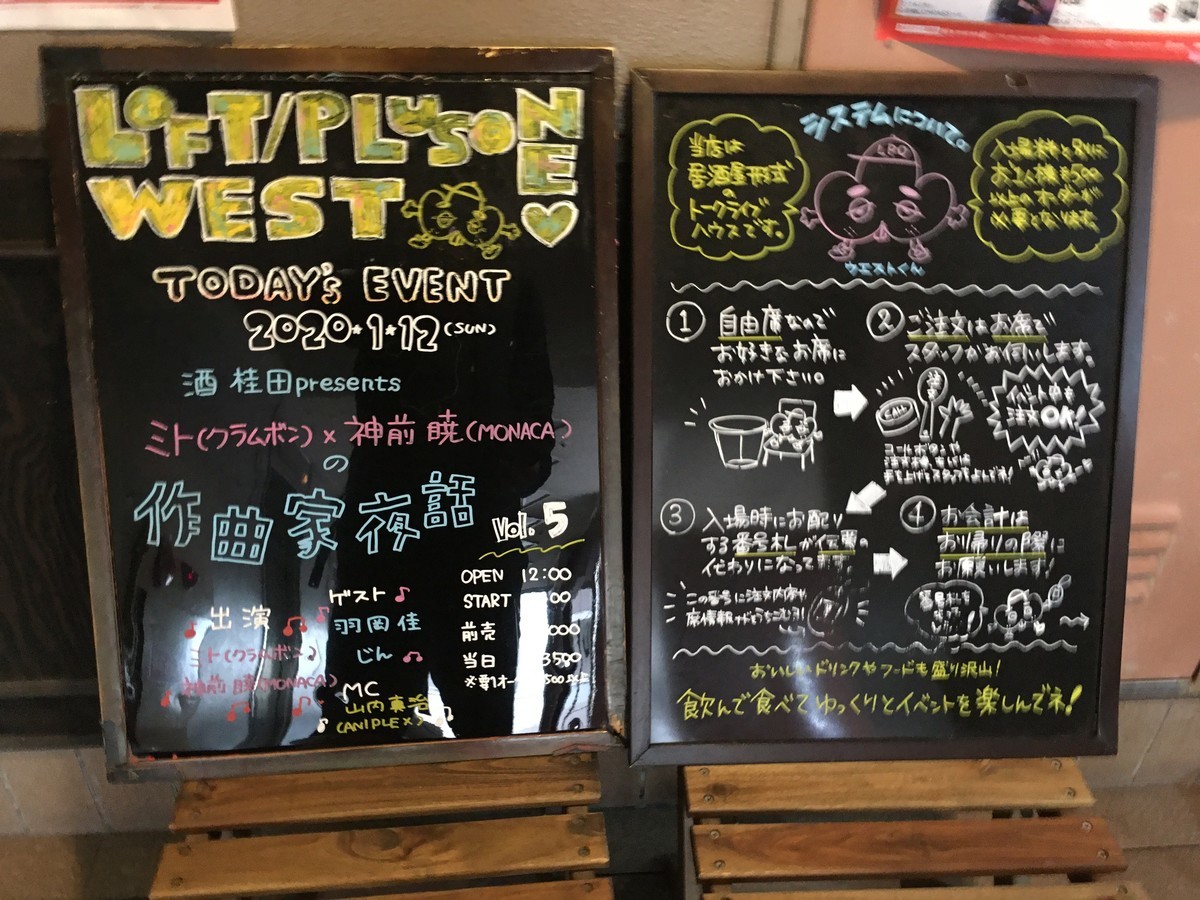 LOFT/PLUSONE
WEST
TODAY's EVENT
2020*1*12(SUN)
酒 桂田presents
ミト(クラムボン)×神前 暁(MONACA)
の
作曲家夜話
Vol.5
出演
ミト(クラムボン)
神前 暁(MONACA)
ゲスト♪
羽岡 佳
じん♫
MC
山内真治
(ANIPLEX)
OPEN 12:00
START 00
前売 000
当日 3500
システムについて。
当店は
居酒屋形式
の
トークライブ
ハウスです。
LPO
ウエストくん
入場料と別に
お1人様¥500
以上のオーダーが
必要となります。
① 自由席なので
お好きなお席に
おかけ下さい。
② ご注文はお席で
スタッフがお伺いします。
CALL
イベント中も
注文OK!
コールボタンや
手を上げてスタッフをよんで下さい!
③ 入場時にお配り
する番号札が伝票の
代わりになってます。
この番号に注文内容や
席情報がうちこむヨ!
④ お会計は
お帰りの際に
お願いします!
番号札を
おいしいドリンクやフードも盛り沢山!
飲んで食べてゆっくりとイベントを楽しんでネ!